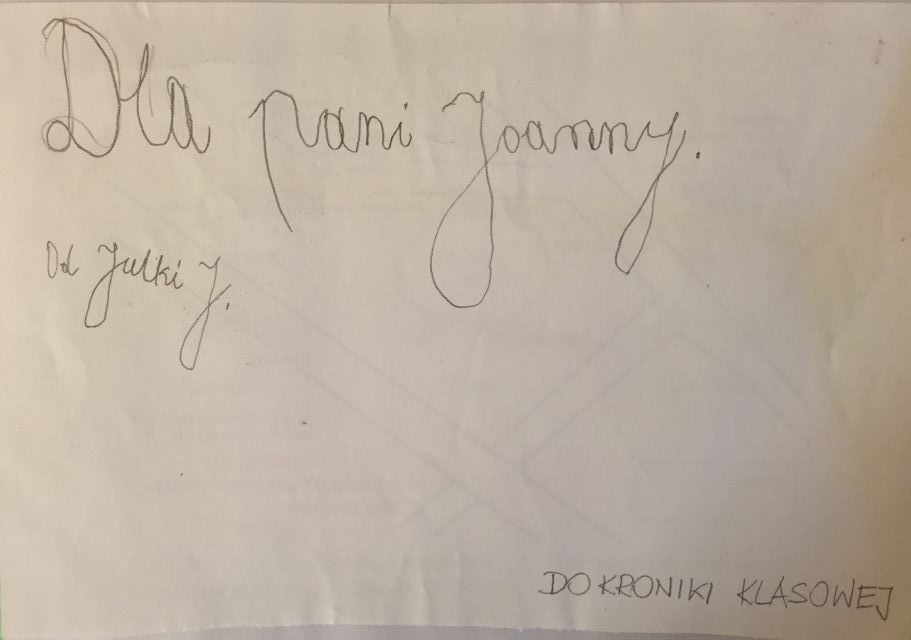 Dla pani Joanny.
Od Julki J.
DO KRONIKI KLASOWEJ